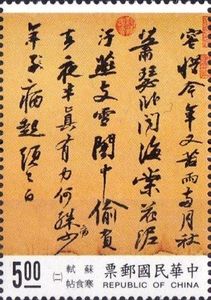 容惜今年又苦雨兩月秋
蕭瑟臥聞海棠花泥
汙燕支雪闇中偷負
去夜半真有力何殊病少
年子病起頭已白
中華民國郵票
REPUBLIC OF CHINA
蘇軾
寒食帖
(二)
5.00